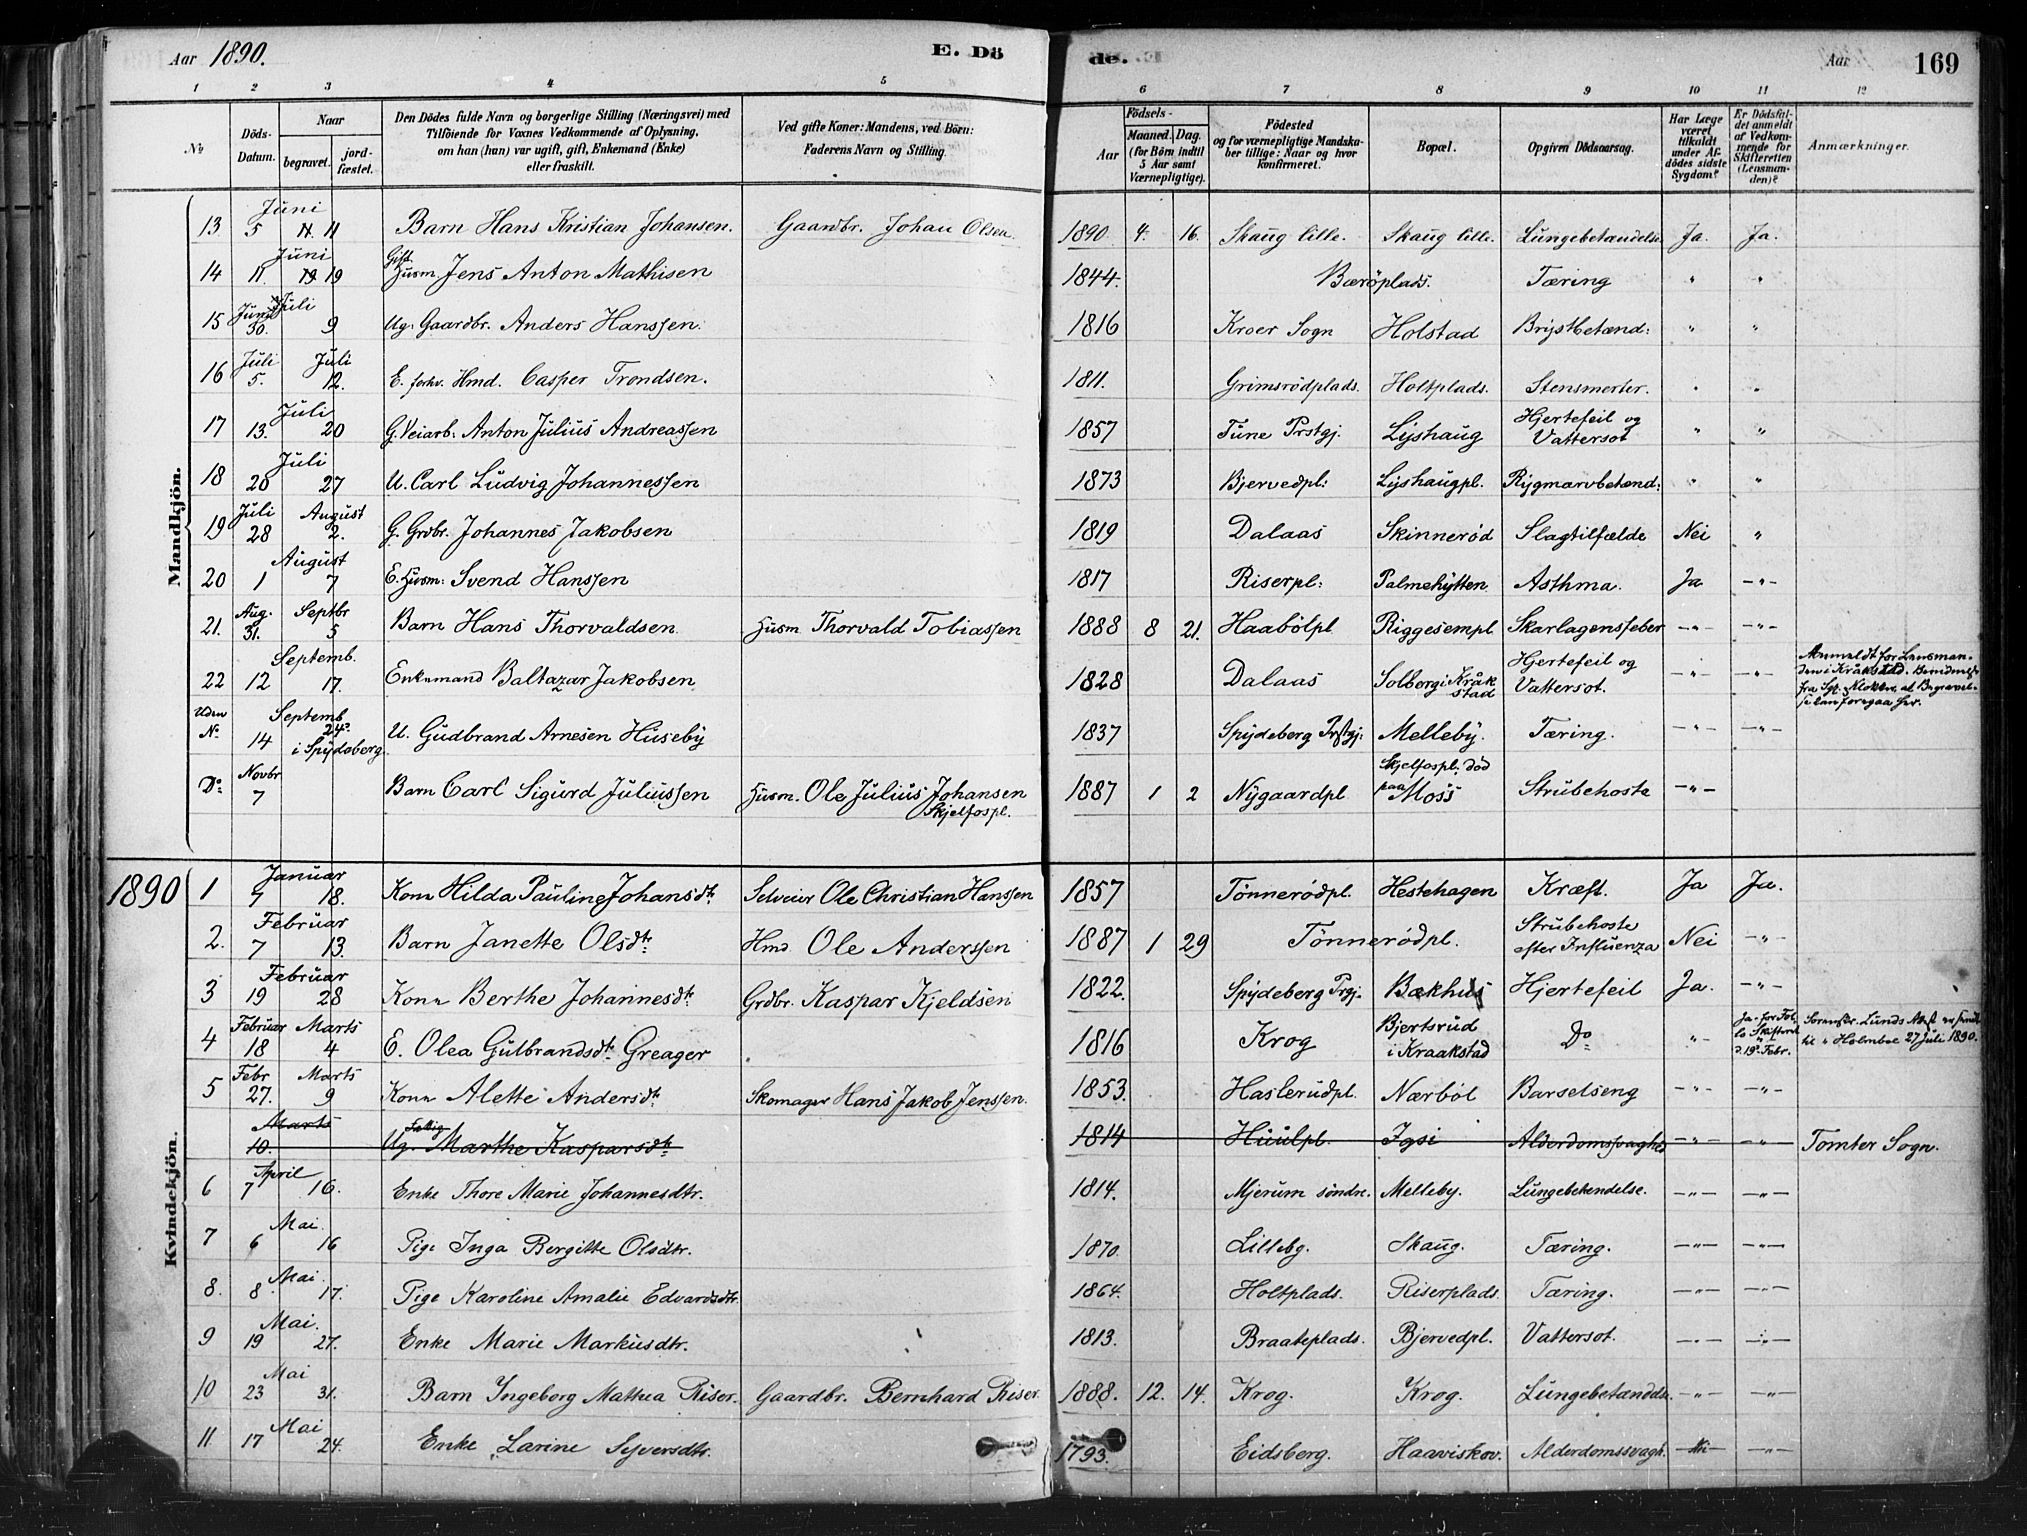 Aar 1890. E. Döde. Aar 169
1 2 3 4 5 6 7 8 9 10 11 12
№ Döds-Datum. Naar begravet. jordfæstet. Den Dödes fulde Navn og borgerlige Stilling (Næringsvei) med Tilföiende for Voxnes Vedkommende af Oplysning, om han (hun) var ugift, gift, Enkemand (Enke) eller fraskilt. Ved gifte Koner: Mandens, ved Börn: Faderens Navn og Stilling. Födsels- Aar Maaned. Dag. (for Börn indtil 5 Aar samt Værnepligtige). Födested og for værnepligtige Mandskaber tillige: Naar og hvor konfirmeret. Bopæl. Opgiven Dödsaarsag. Har Læge været tilkaldt under Afdödes sidste Sygdom? Er Dödsfaldet anmeldt af Vedkommende for Skifteretten (Lensmanden)? Anmærkninger.
Mandkjön.
13. Juni 5 11. 11 Barn Hans Kristian Johansen. Gaardbr. Johan Olsen. 1890. 4. 16. Skaug lille. Skaug lille. Lungebetændelse Ja. Ja.
14 Juni 11. 19 19 Gift Husm. Jens Anton Mathisen 1844. Bærøplads. Tæring " "
15 Juni 30. Juli 9 Ug. Gaardbr. Anders Hanssen. 1816 Kroer Sogn Holstad Brystbetænd: " "
16 Juli 5. Juli 12. E. forhv. Hmd. Casper Trondsen. 1811. Grimsrødplads. Holtplads. Stensmerter. " "
17 Juli 13. 20 G. Veiarb: Anton Julius Andreassen 1857 Tune Prstgj. Lyshaug Hjertefeil og Vattersot " "
18 Juli 20 27 U. Carl Ludvig Johannessen 1873 Bjervedpl: Lyshaugpl. Rygmarvbetænd: " "
19 Juli 28 August 2. G. Grdbr. Johannes Jakobsen 1819 Dalaas Skinnerød Slagtilfælde Nei "
20 August 1 7 E. Husm: Svend Hanssen 1817 Riserpl: Palmehytten Asthma. Ja -"-
21. Aug. 31. Septbr 5 Barn Hans Thorvaldsen Husm Thorvald Tobiassen 1888 8 21. Haabölpl Riggesempl Skarlagensfeber -"- -"-
22 Septemb. 12 17. Enkemand Baltazar Jakobsen 1828 Dalaas Solberg i Kråkstad Hjertefeil og Vattersot. -"- -"- Anmeldt for Lensmanden i Kråkstad.
Uden № Septemb 14 24de i Spydeberg. U. Gudbrand Arnesen Huseby 1837 Spydeberg Prstgj: Melleby. Tæring. -"- -"-
Do Novbr 7 Barn Carl Sigurd Juliussen Husm. Ole Julius Johansen Skjelfospl. 1887 1 2 Nygaardpl Skjelfospl. död paa Moss Strubehoste -"-
1890
Kvindekjön.
1 Januar 7 18. Kone Hilda Pauline Johansdtr. Selveier Ole Christian Hanssen 1857 Tønnerødpl. Hestehagen Kræft. Ja Ja.
2. Februar 7 13. Barn Janette Olsdtr. Hmd. Ole Anderssen 1887 1 29 Tønnerødpl. Strubehoste efter Influenza Nei -"-
3 Februar 19 28 Kone Berthe Johannesdtr. Grdbr. Kaspar Kjeldsen 1822. Spydeberg Prgj. Bækhus Hjertefeil Ja. -"-
4 Februar 18 Marts 4 E. Olea Gulbrandsdtr. Greager 1816 Krog Bjertsrud i Kraakstad Do " Ja - for Follo Skifteret d. 19de Febr. Sorenskr. Lunds Attest er sendt til " Holmboe 27 Juli 1890.
5 Febr 27. Marts 9 Kone Alette Andersdtr. Skomager Hans Jakob Jenssen. 1853. Haslerudpl. Nærböl Barselseng -"- -"-
Marts 10. Ug. Fattig Marthe Kasparsdtr. 1814 Huulpl. Igsi Alderdomssvaghed -"- -"- Tomter Sogn.
6 April 7 16. Enke Thore Marie Johannesdtr. 1814. Mjerum søndre. Melleby. Lungebetendelse. -"- -"-
7 Mai. 6 16 Pige Inga Bergitte Olsdtr. 1870. Lillebg. Skaug. Tæring. -"- -"-
8. Mai. 8. 17. Pige Karoline Amalie Edvardsdtr. 1864. Holtplads. Riserplads. Tæring. -"- -"-
9 Mai. 19 27. Enke Marie Markusdtr. 1813. Braateplads. Bjervedpl. Vattersot. -"- -"-
10 Mai 23 31. Barn Ingeborg Mathea Riser. Gaardbr. Bernhard Riser. 1888. 12. 14. Krog. Krog. Lungebetændelse. -"- -"-
11. Mai 17 24. Enke Larine Syversdtr. 1793. Eidsberg. Haaviskov. Alderdomssvagh. Nei -"-